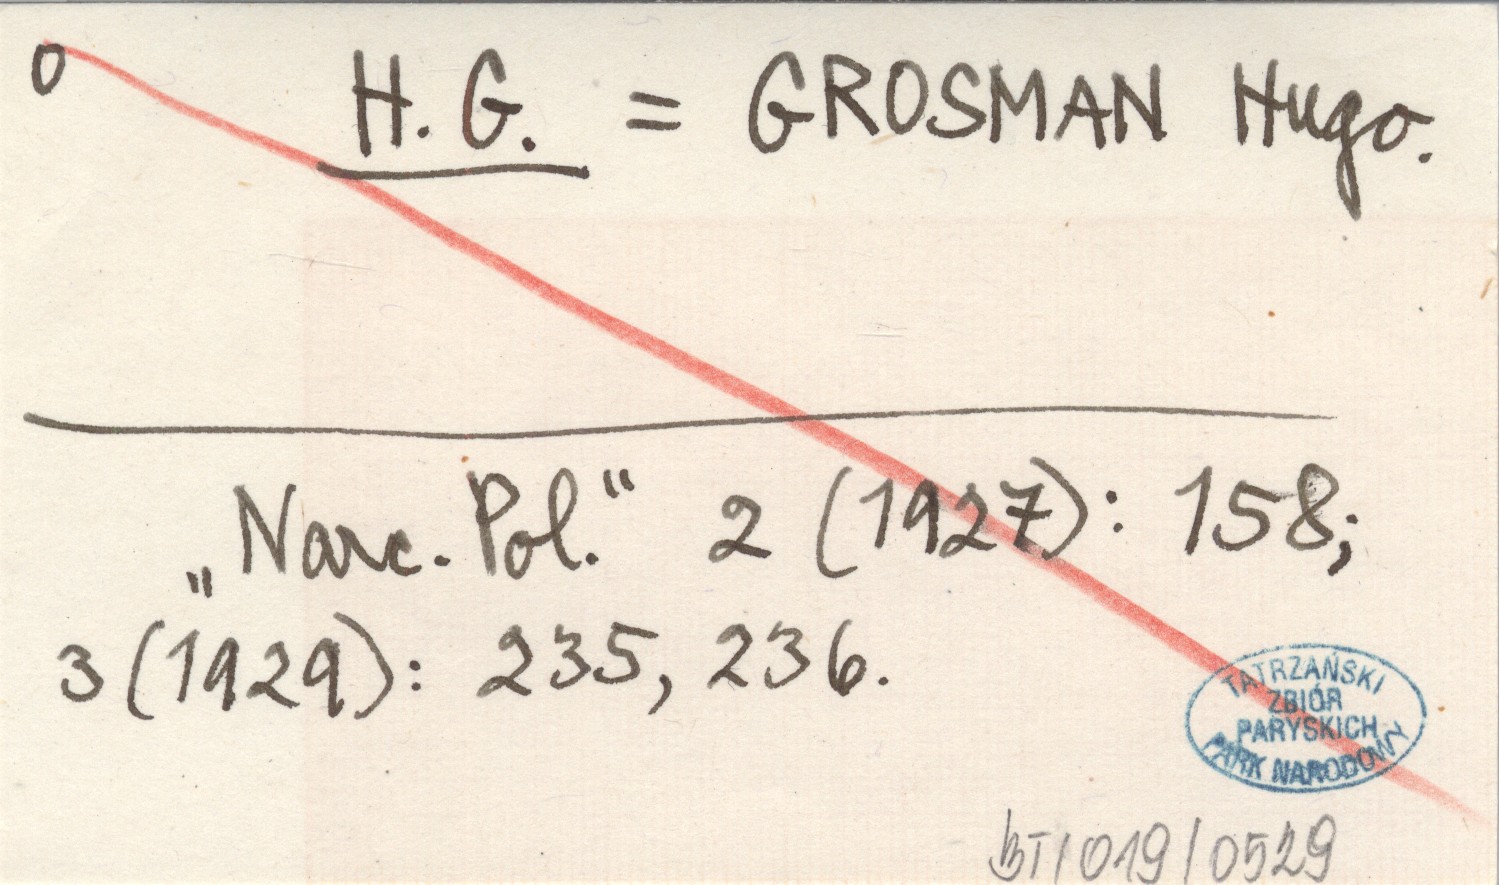 0
H. G. = GROSMAN Hugo.
„Narc. Pol.“ 2 (1927): 158;
3 (1929): 235, 236.
TATRZAŃSKI
ZBIÓR
PARYSKICH
PARK NARODOWY
BT/019/0529